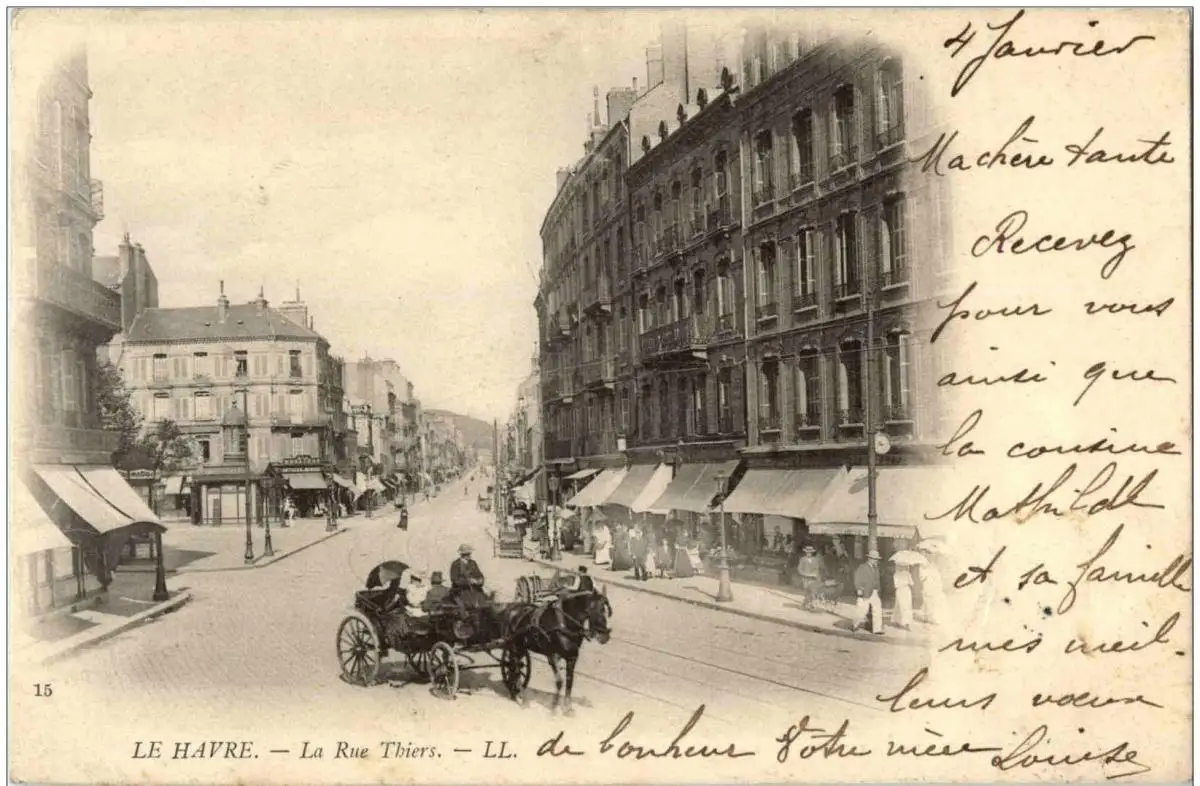 4 Janvier
Ma chère tante
Recevez
pour vous
ainsi que
la cousine
Mathilde
et sa famille
mes meil.
leurs voeux
15
LE HAVRE. — La Rue Thiers. — LL.
de bonheur Votre nièce Louise